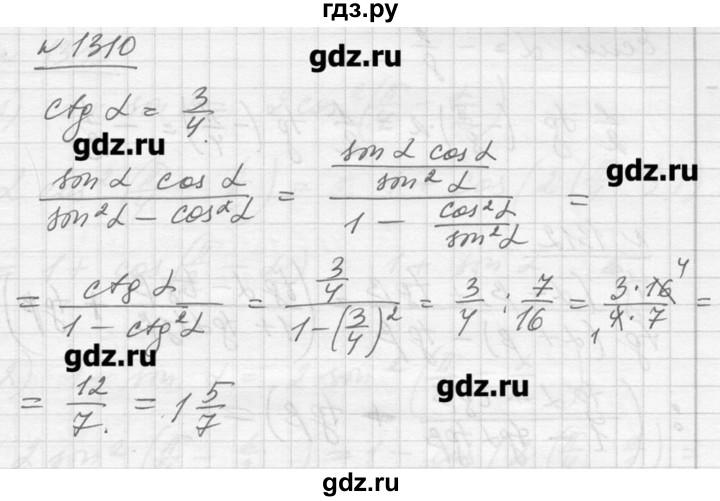 гдз.ру
№ 1310
gdz.ru
ctg α = 3/4
gdz.ru
gdz.ru
(sin α cos α)/(sin²α − cos²α) = ((sin α cos α)/(sin²α))/(1 − (cos²α)/(sin²α)) =
= (ctg α)/(1 − ctg²α) = (3/4)/(1 − (3/4)²) = 3/4 : 7/16 = (3 · 16 4)/(1 4 · 7) =
gdz.ru
gdz.ru
= 12/7. = 1 5/7
gdz.ru